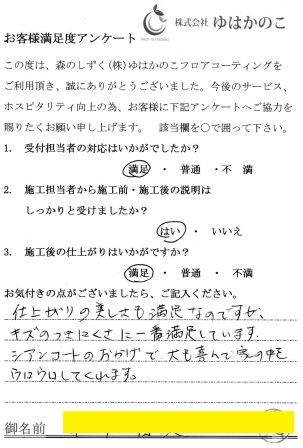 株式会社 ゆはかのこ
お客様満足度アンケート
この度は、森のしずく(株)ゆはかのこフロアコーティングを
ご利用頂き、誠にありがとうございました。今後のサービス、
ホスピタリティ向上の為、お客様に下記アンケートへご協力を
賜りたくお願い申し上げます。 該当欄を〇で囲って下さい。
1. 受付担当者の対応はいかがでしたか?
満足 ・ 普通 ・不 満
2. 施工担当者から施工前・施工後の説明は
しっかりと受けましたか?
はい ・ いいえ
3. 施工後の仕上がりはいかがですか?
満足 ・ 普通 ・ 不満
お気付きの点がございましたら、ご記入ください。
仕上がりの美しさも満足なのですが、
キズのつきにくさに一番満足しています。
シアンコートのおかげで犬も喜んで家の中を
ウロウロしてくれます。
御名前